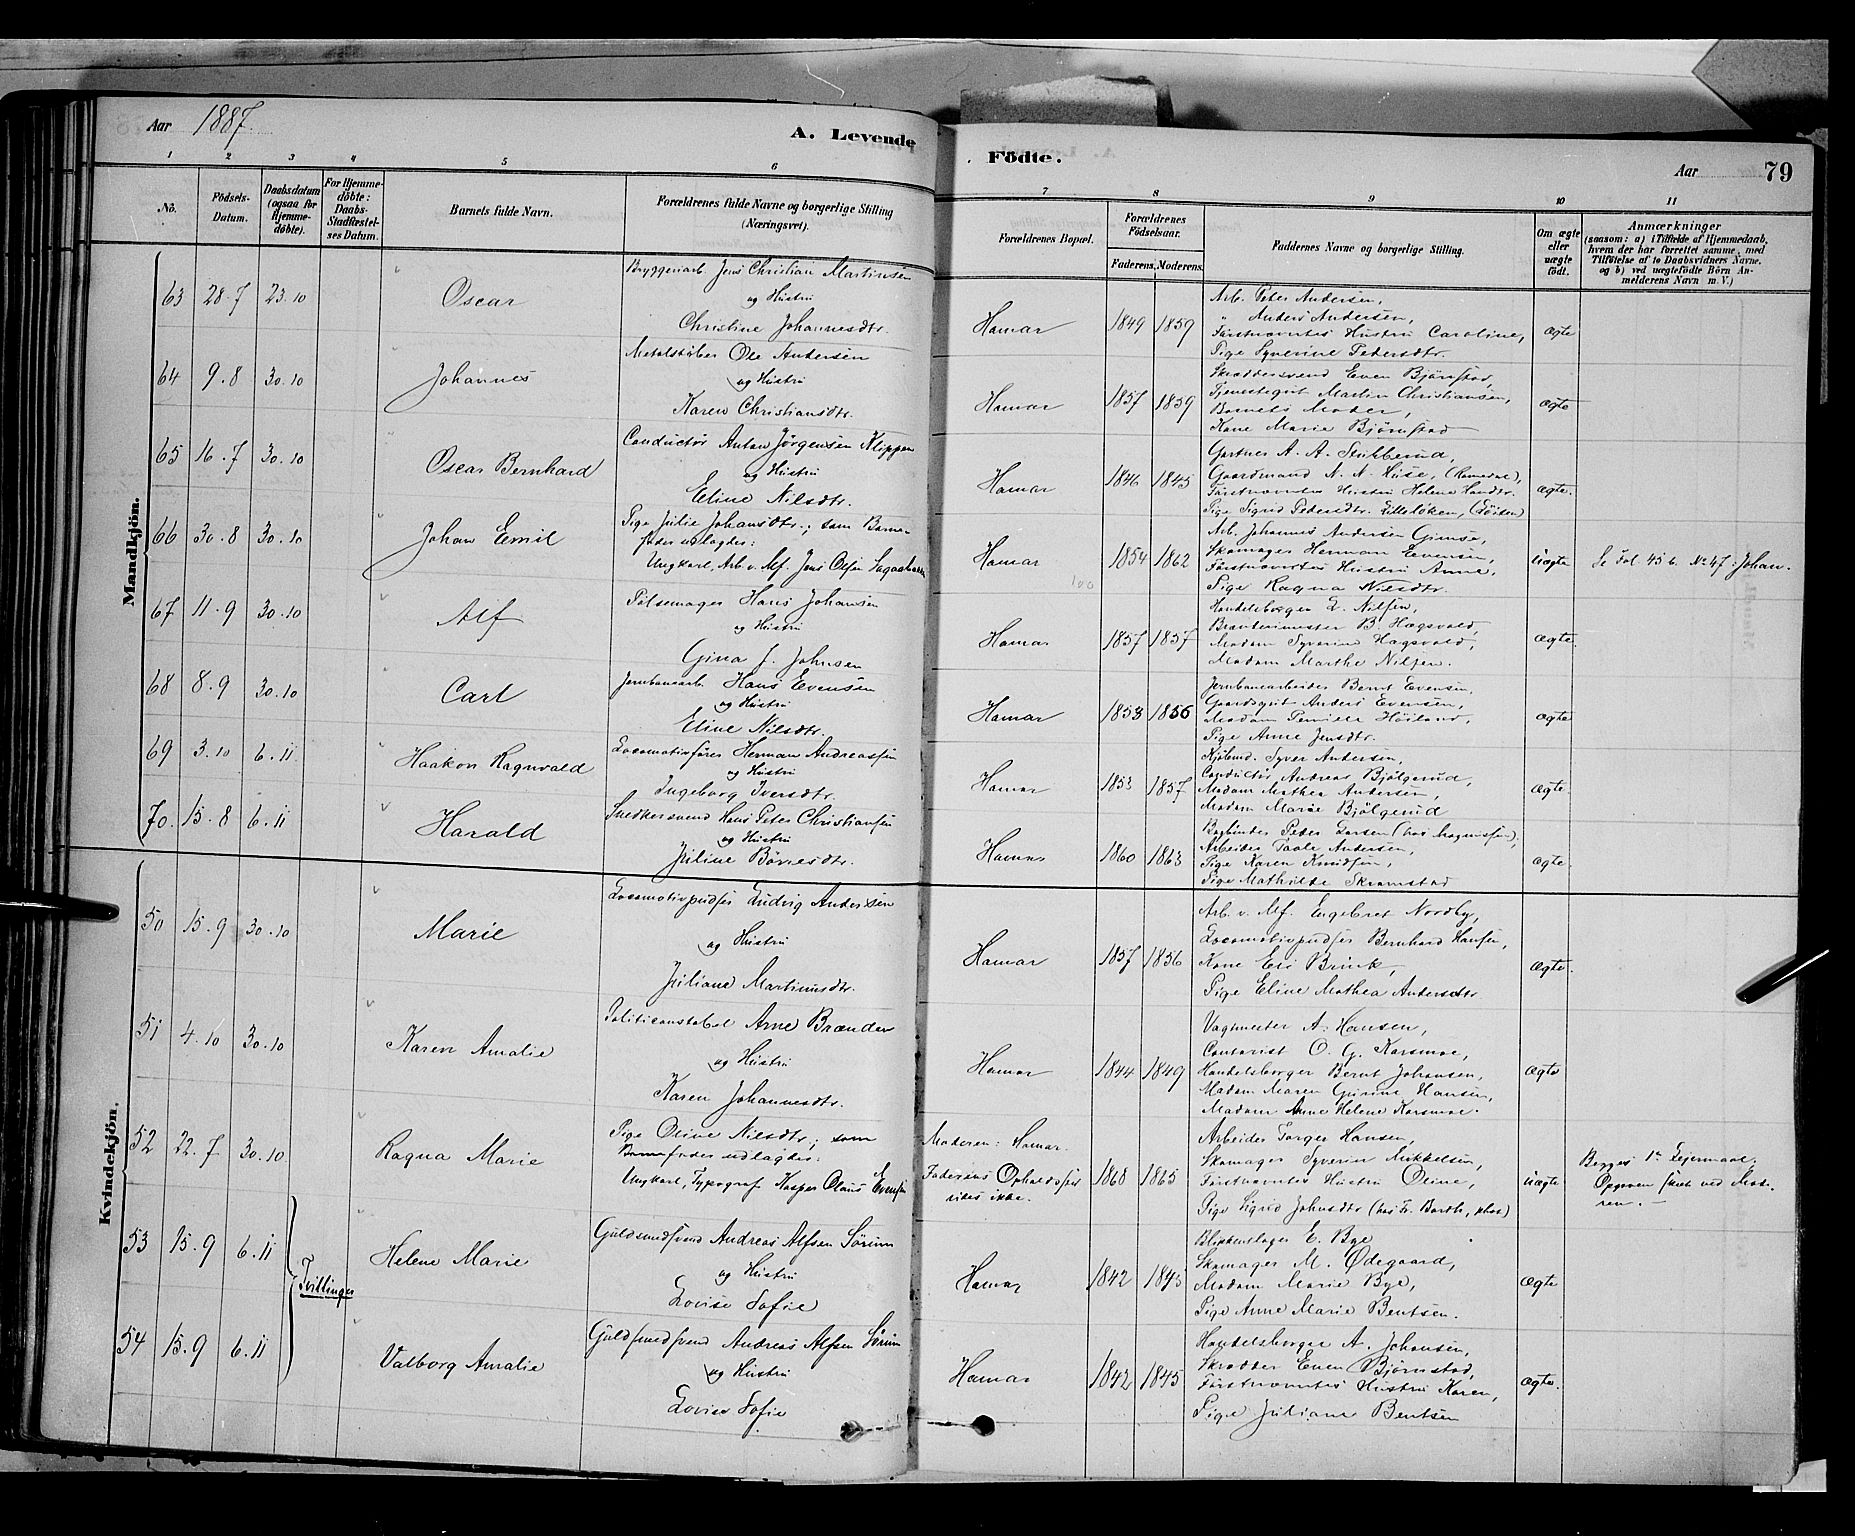 Aar 1887.
A. Levende Födte.
Aar 79
1 2 3 4 5 6 7 8 9 10 11
No.
Födsels-Datum.
Daabsdatum (ogsaa for Hjemmedöbte).
For Hjemmedöbte: Daabs-Stadfæstelses Datum.
Barnets fulde Navn.
Forældrenes fulde Navne og borgerlige Stilling (Næringsvei).
Forældrenes Bopæl.
Forældrenes Födselsaar.
Faderens. Moderens.
Faddernes Navne og borgerlige Stilling.
Om ægte eller uægte födt.
Anmærkninger
(saasom: a) i Tilfælde af Hjemmedaab, hvem der har forrettet samme, med Tilföielse af to Daabsvidners Navne, og b) ved uægtefödte Börn Anmelderens Navn m. V.)
Mandkjön.
63 28.7 23.10 Oscar
Bryggeriarb. Jens Christian Martinsen
og Hustru
Christine Johannesdtr.
Hamar 1849 1859
Arb. Peter Andersen,
" Anders Andersen,
Förstnævntes Hustru Caroline,
Pige Syverine Pedersdtr.
ægte
64 9.8 30.10 Johannes
Metalstøber Ole Andersen
og Hustru
Karen Christiansdtr.
Hamar 1857 1859
Skræddersvend Even Björnstad,
Tjenestegut Martin Christiansen,
Barnets Moder,
Kone Marie Björnstad
ægte
65 16.7 30.10 Oscar Bernhard
Conductör Anton Jörgensen Klippen
og Hustru
Eline Nilsdtr.
Hamar 1846 1845
Gartner A. A. Stubberud,
Gaardmand N. N. Huse, (Romedal)
Förstnævntes Hustru Helene Hansdr.
Pige Sigrid Pedersdtr. Lilleløken, (Löiten)
ægte.
66 30.8 30.10 Johan Emil
Pige Julie Johansdtr.; som Barnefader udlagdes:
Ungkarl, Arb. v. Mf. Jens Olsen
Hamar 1854 1862
Arb. Johannes Andersen Gimse,
Skomager Herman Evensen,
Förstnævntes Hustru Anne,
Pige Ragna Nilsdtr.
uægte
Se Fol. 45 b. No 47: Johan.
67 11.9 30.10 Alf
Pølsemager Hans Johansen
og Hustru
Gina J. Johnsen
Hamar 1857 1857
Handelsborger E. Nilsen,
Branderimester B. Hagsvold,
Madam Syverine Hagsvold,
Madam Marthe Nilsen.
ægte.
68 8.9 30.10 Carl
Jernbanearb. Hans Evensen
og Hustru
Eline Nilsdtr.
Hamar 1853 1856
Jernbanearbeider Bernt Evensen,
Gaardsgut Anders Evensen,
Madam Pernille Höiland,
Pige Anne Jensdtr.
ægte
69 3.10 6.11 Haakon Ragnvald
Locomotivfører Herman Andreassen
og Hustru
Ingeborg Iversdtr.
Hamar 1853 1857
Kjøbmd. Syver Andersen,
Conductör Andreas Bjölgerud,
Madam Mathea Andersen,
Madam Marie Bjölgerud
ægte.
70. 15.8 6.11 Harald
Snedkersvend Hans Peter Christiansen
og Hustru
Juline Børresdtr.
Hamar 1860 1863
Bogbinder Peder Larsen (hos Magnussen),
Arbeider Paale Andersen,
Pige Karen Knudsen,
Pige Mathilde Skramstad
ægte.
Kvindekjön.
50 15.9 30.10 Marie
Locomotivpudser Ludvig Andersen
og Hustru
Juliane Martinusdtr.
Hamar 1857 1856
Arb. v. Mf. Engebret Nordby,
Locomotivpudser Bernhard Hansen,
Kone Eli Brink,
Pige Eline Mathea Andersdtr
ægte.
51 4.10 30.10 Karen Amalie
Politiconstabel Arne Brænden
og Hustru
Karen Johannesdtr.
Hamar 1844 1849
Vagtmester A. Hansen,
Contorist O. G. Korsmoe,
Handelsborger Bernt Johansen,
Madam Maren Gurine Hansen,
Madam Anne Helene Korsmoe.
ægte
52 22.7 30.10 Ragna Marie
Pige Oline Nilsdtr; som
Barnefader udlagdes:
Ungkarl, Typograf Kasper Olaus Evensen
Moderen: Hamar.
Faderens Opholdssted vides ikke.
1868 1865
Arbeider Torger Hansen,
Skomager Syverin Mikkelsen,
Förstnævntes Hustru Oline,
Pige Sigrid Johnsdtr (hos Fr. Barth,
uægte
Begges 1te Leiermaal.
Opgaven skeet ved Moderen.
53 15.9 6.11 Tvillinger Helene Marie
Guldsmedsvend Andreas Alfsen Sörum
og Hustru
Lovise Sofie
Hamar 1842 1845
Blikkenslager E. Bye
Skomager M. Ødegaard,
Madam Marie Bye,
Pige Anne Marie Bentsen.
ægte
54 15.9 6.11 Valborg Amalie
Guldsmedsvend Andreas Alfsen Sörum
og Hustru
Lovise Sofie
Hamar 1842 1845
Handelsborger A. Johansen,
Skrædder Even Bjørnstad,
Förstnævntes Hustru Karen,
Pige Juliane Bentsen
ægte.